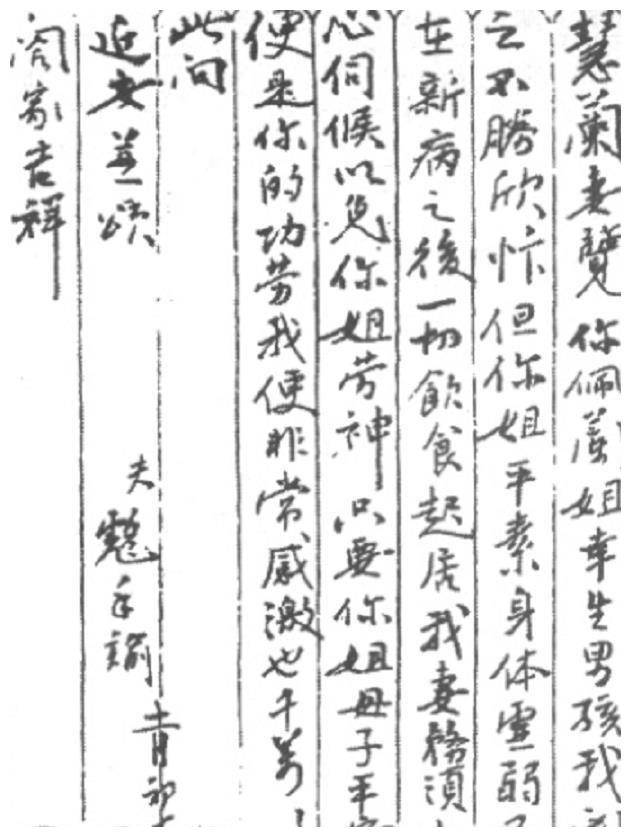 慧蘭妻覽你佩蘭姐幸生男孩我
之不勝欣忭但你姐平素身体虛弱
在新病之後一切飲食起居我妻務須
心伺候以免你姐勞神只要你姐母子平
便是你的功劳我便非常感激也千萬
此问
近安並頌
閤家吉祥
夫 魁手諭
十一月初